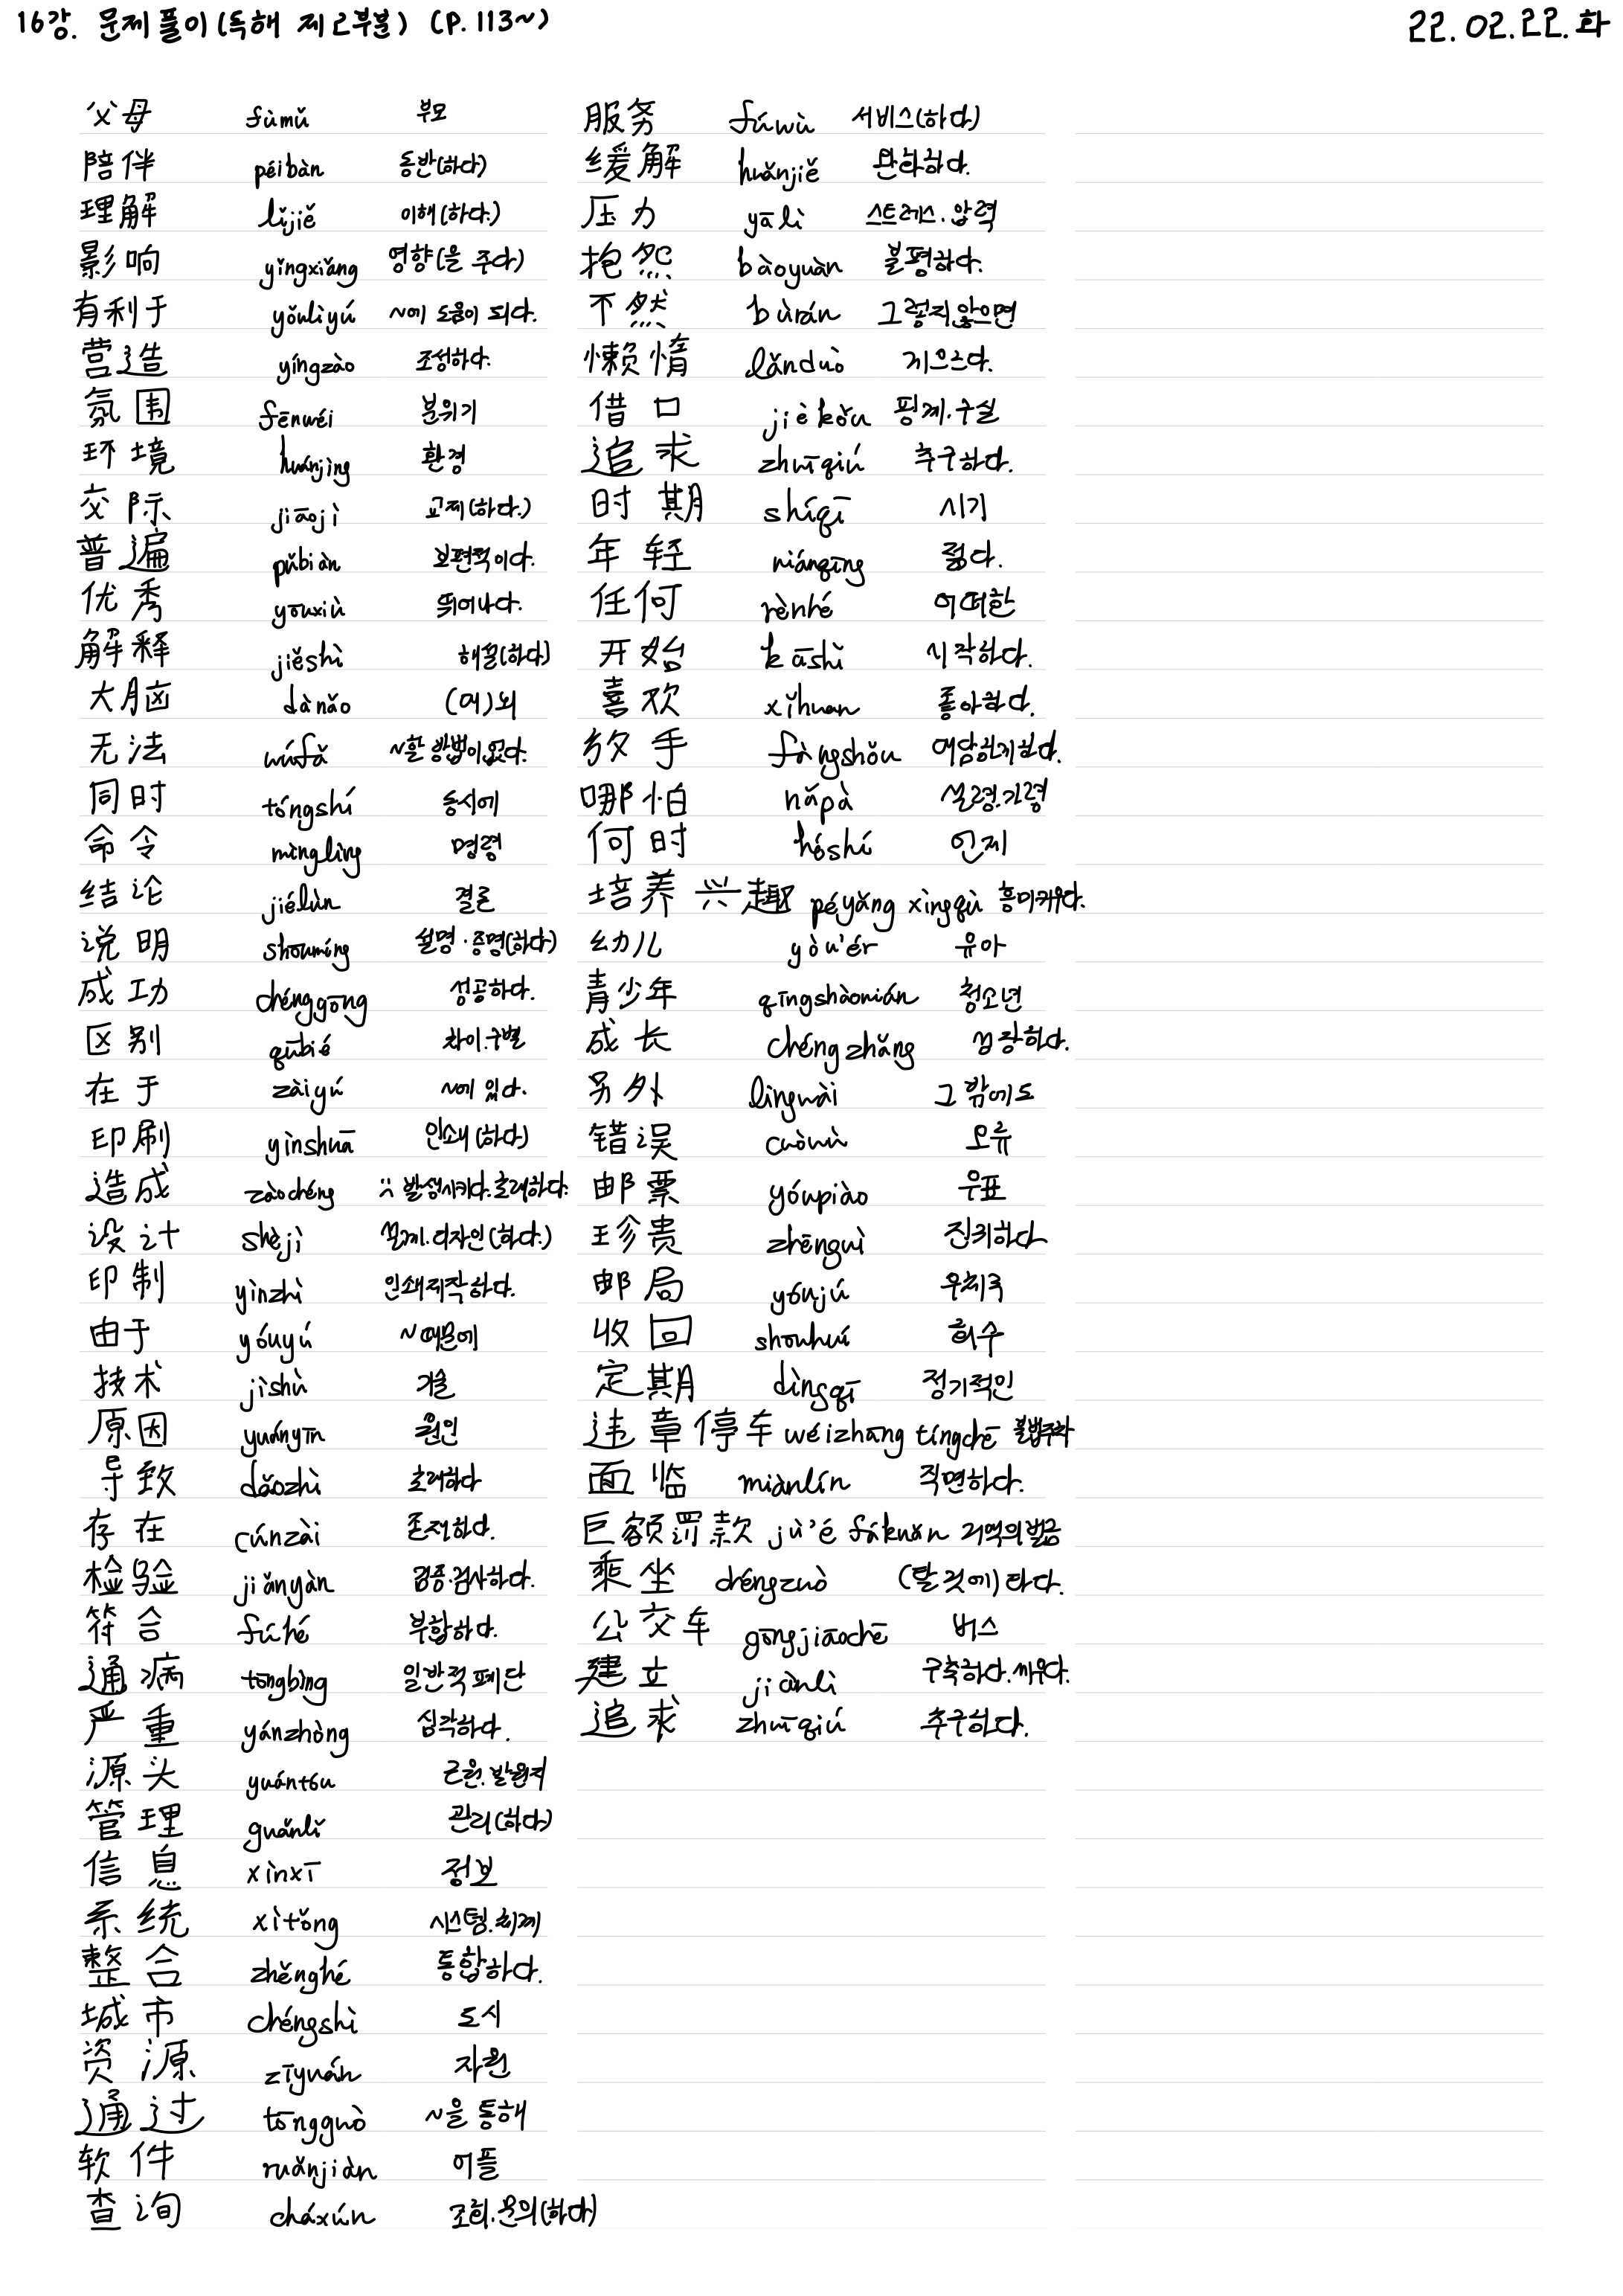 16강. 문제 풀이 (독해 제2부분) (P. 113~)
22. 02. 22. 화
父母 fùmǔ 부모
陪伴 péibàn 동반(하다)
理解 lǐjiě 이해(하다.)
影响 yǐngxiǎng 영향(을 주다)
有利于 yǒulìyú ~에 도움이 되다.
营造 yíngzào 조성하다.
氛围 fēnwéi 분위기
环境 huánjìng 환경
交际 jiāojì 교제(하다.)
普遍 pǔbiàn 보편적이다.
优秀 yōuxiù 뛰어나다.
解释 jiěshì 해설(하다)
大脑 dànǎo (대)뇌
无法 wúfǎ ~할 방법이 없다.
同时 tóngshí 동시에
命令 mìnglìng 명령
结论 jiélùn 결론
说明 shoumíng 설명·증명(하다)
成功 chénggōng 성공하다.
区别 qūbié 차이.구별
在于 zàiyú ~에 있다.
印刷 yìnshuā 인쇄(하다)
造成 zàochéng :: 발생시키다.초래하다.
设计 shèjì 설계.디자인(하다.)
印制 yìnzhì 인쇄제작하다.
由于 yóuyú ~때문에
技术 jìshù 기술
原因 yuányīn 원인
导致 dǎozhì 초래하다
存在 cúnzài 존재하다.
检验 jiǎnyàn 검증.검사하다.
符合 fúhé 부합하다.
通病 tōngbìng 일반적 폐단
严重 yánzhòng 심각하다.
源头 yuántóu 근원.발원지
管理 guǎnlǐ 관리(하다)
信息 xìnxī 정보
系统 xìtǒng 시스템.체계
整合 zhěnghé 통합하다.
城市 chéngshì 도시
资源 zīyuán 자원
通过 tōngguò ~을 통해
软件 ruǎnjiàn 어플
查询 cháxún 조회.문의(하다)
服务 fúwù 서비스(하다)
缓解 huǎnjiě 완화하다.
压力 yālì 스트레스.압력
抱怨 bàoyuàn 불평하다.
不然 bùrán 그렇지않으면
懒惰 lǎnduò 게으르다.
借口 jièkǒu 핑계.구실
追求 zhuīqiú 추구하다.
时期 shíqī 시기
年轻 niánqīng 젊다.
任何 rènhé 어떠한
开始 kāshǐ 시작하다.
喜欢 xǐhuan 좋아하다.
放手 fàngshǒu 대담하게하다.
哪怕 nǎpà 설령.가령
何时 héshí 언제
培养 兴趣 péyǎng xìngqù 흥미키우다.
幼儿 yòu'ér 유아
青少年 qīngshàonián 청소년
成长 chéngzhǎng 성장하다.
另外 lìngwài 그 밖에도
错误 cuòwù 오류
邮票 yóupiào 우표
珍贵 zhēnguì 진귀하다
邮局 yóujú 우체국
收回 shouhuí 회수
定期 dìngqī 정기적인
违章停车 wéizhāng tíngchē 불법주차
面临 miànlín 직면하다.
巨额罚款 jù'é fákuǎn 거액의벌금
乘坐 chéngzuò (탈것에)타다.
公交车 gōngjiāochē 버스
建立 jiànlì 구축하다.세우다.
追求 zhuīqiú 추구하다.